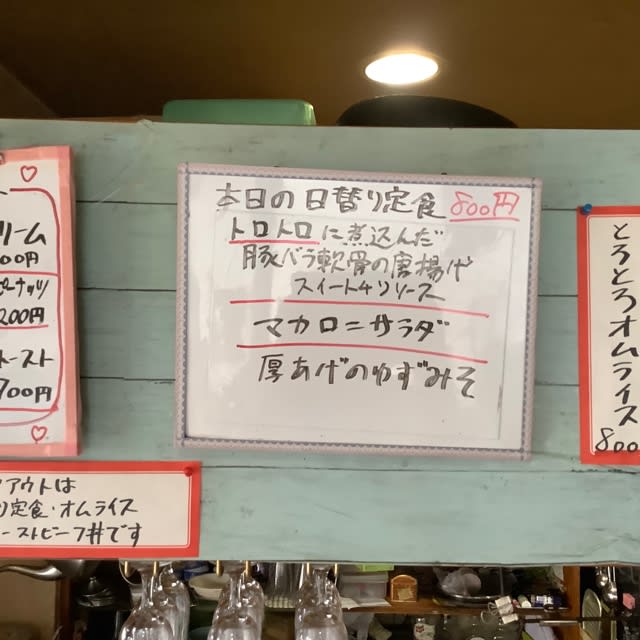 リーム
00円
ピーナッツ
200円
トースト
700円
本日の日替り定食 800円
トロトロに煮込んだ
豚バラ軟骨の唐揚げ
スイートチリソース
マカロニサラダ
厚あげのゆずみそ
とろとろオムライス
800
アウトは
り定食・オムライス
ーストビーフ丼です